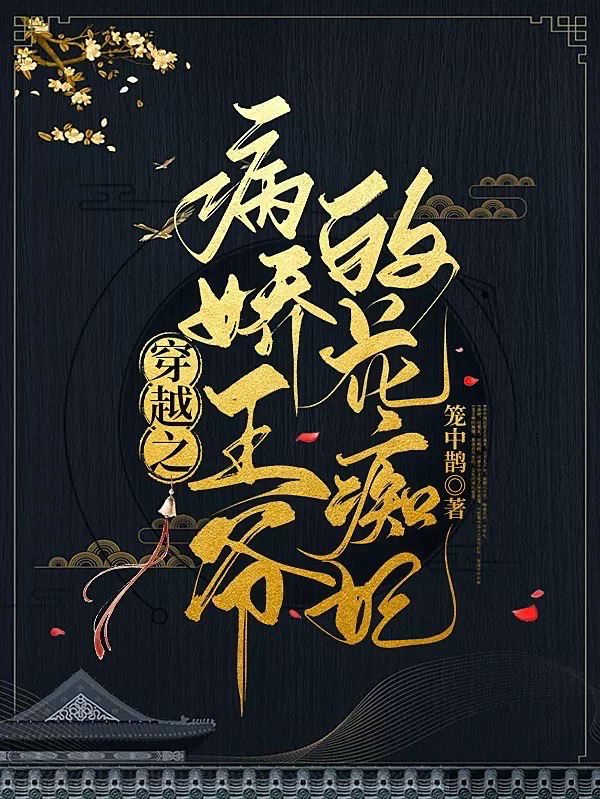 穿越之
病娇王爷
的花痴妃
笼中鹊◎著